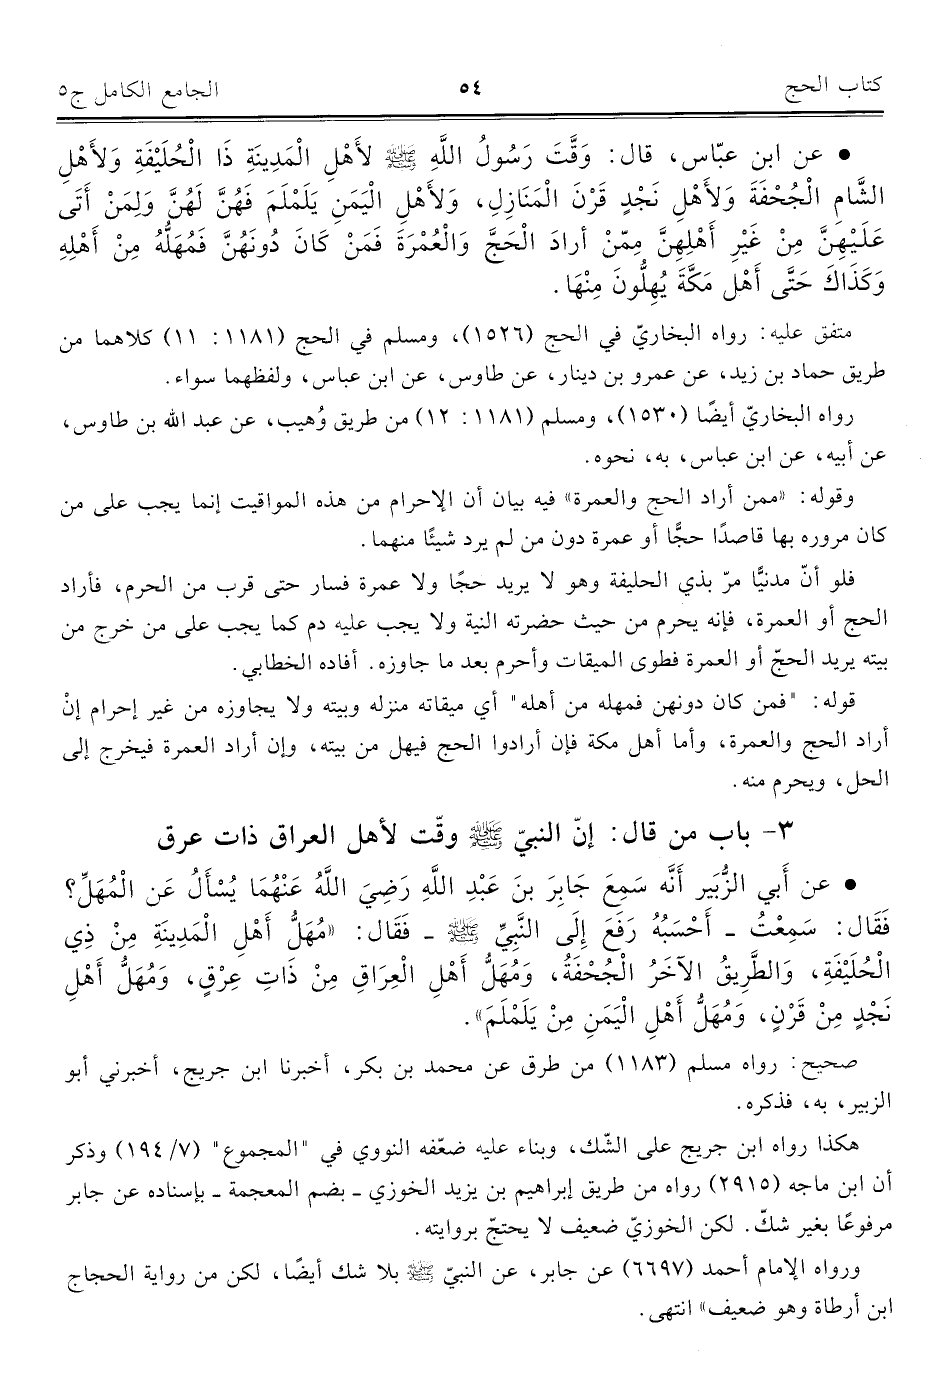 كتاب الحج ٥٤ الجامع الكامل ج٥
• عن ابن عبّاس، قال: وَقَّتَ رَسُولُ اللَّهِ ﷺ لأَهْلِ الْمَدِينَةِ ذَا الْحُلَيْفَةِ وَلأَهْلِ
الشَّامِ الْجُحْفَةَ وَلأَهْلِ نَجْدٍ قَرْنَ الْمَنَازِلِ، وَلأَهْلِ الْيَمَنِ يَلَمْلَمَ فَهُنَّ لَهُنَّ وَلِمَنْ أَتَى
عَلَيْهِنَّ مِنْ غَيْرِ أَهْلِهِنَّ مِمّنْ أرادَ الْحَجَّ وَالْعُمْرَةَ فَمَنْ كَانَ دُونَهُنَّ فَمُهَلُّهُ مِنْ أَهْلِهِ
وَكَذَاكَ حَتَّى أَهْل مَكَّةَ يُهِلُّونَ مِنْهَا.
متفق عليه: رواه البخاريّ في الحج (١٥٢٦)، ومسلم في الحج (١١٨١: ١١) كلاهما من
طريق حماد بن زيد، عن عمرو بن دينار، عن طاوس، عن ابن عباس، ولفظهما سواء.
رواه البخاريّ أيضًا (١٥٣٠)، ومسلم (١١٨١: ١٢) من طريق وُهيب، عن عبد الله بن طاوس،
عن أبيه، عن ابن عباس، به، نحوه.
وقوله: «ممن أراد الحج والعمرة» فيه بيان أن الإحرام من هذه المواقيت إنما يجب على من
كان مروره بها قاصدًا حجًّا أو عمرة دون من لم يرد شيئًا منهما.
فلو أنّ مدنيًّا مرّ بذي الحليفة وهو لا يريد حجًا ولا عمرة فسار حتى قرب من الحرم، فأراد
الحج أو العمرة، فإنه يحرم من حيث حضرته النية ولا يجب عليه دم كما يجب على من خرج من
بيته يريد الحجّ أو العمرة فطوى الميقات وأحرم بعد ما جاوزه. أفاده الخطابي.
قوله: "فمن كان دونهن فمهله من أهله" أي ميقاته منزله وبيته ولا يجاوزه من غير إحرام إنْ
أراد الحج والعمرة، وأما أهل مكة فإن أرادوا الحج فيهل من بيته، وإن أراد العمرة فيخرج إلى
الحل، ويحرم منه.
٣- باب من قال: إنّ النبيّ ﷺ وقّت لأهل العراق ذات عرق
• عن أَبي الزُّبَير أَنَّه سَمِعَ جَابِرَ بنَ عَبْدِ اللَّهِ رَضِيَ اللَّهُ عَنْهُمَا يُسْأَلُ عَن الْمُهَلِّ؟
فَقَالَ: سَمِعْتُ ـ أَحْسَبُهُ رَفَعَ إِلَى النَّبِيِّ ﷺ ـ فَقَالَ: «مُهَلُّ أَهْلِ الْمَدِينَةِ مِنْ ذِي
الْحُلَيْفَةِ، وَالطَّرِيقُ الآخَرُ الْجُحْفَةُ، وَمُهَلُّ أَهْلِ الْعِرَاقِ مِنْ ذَاتِ عِرْقٍ، وَمُهَلُّ أَهْلِ
نَجْدٍ مِنْ قَرْنٍ، وَمُهَلُّ أَهْلِ الْيَمَنِ مِنْ يَلَمْلَمَ».
صحيح: رواه مسلم (١١٨٣) من طرق عن محمد بن بكر، أخبرنا ابن جريج، أخبرني أبو
الزبير، به، فذكره.
هكذا رواه ابن جريج على الشّك، وبناء عليه ضعّفه النووي في "المجموع" (٧/ ١٩٤) وذكر
أن ابن ماجه (٢٩١٥) رواه من طريق إبراهيم بن يزيد الخوزي ـ بضم المعجمة ـ بإسناده عن جابر
مرفوعًا بغير شكّ. لكن الخوزيّ ضعيف لا يحتجّ بروايته.
ورواه الإمام أحمد (٦٦٩٧) عن جابر، عن النبيّ ﷺ بلا شك أيضًا، لكن من رواية الحجاج
ابن أرطاة وهو ضعيف» انتهى.